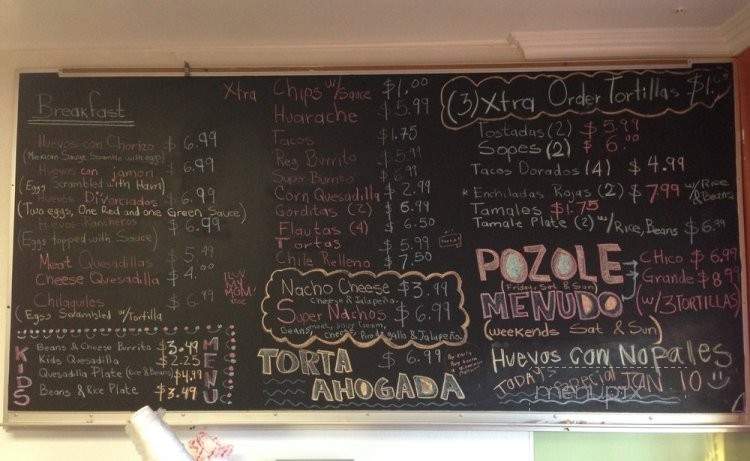 Breakfast
Huevos con Chorizo $6.99
(Mexican Sauge Scramble with eggs)
Huevos con jamon $6.99
(Eggs Scrambled with Ham)
Huevos Divorciados $6.99
(Two eggs, One Red and one Green Sauce)
Huevos Rancheros $6.99
(Eggs topped with Sauce)
Meat Quesadillas $5.49
Cheese Quesadilla $4.00
Chilaquiles $6.99
(Eggs Scrambled w/Tortilla
KIDS MENU
Beans & Cheese Burrito $3.49
Kids Quesadilla $2.25
Quesadilla Plate (Rice & Beans) $4.99
Beans & Rice Plate $3.49
Xtra Chips w/Sauce $1.00
Huarache $5.99
Tacos $1.75
Reg Burrito $5.99
Super Burrito
Corn Quesadilla $2.99
Gorditas (2) $6.99
Flautas (4) $6.50
Tortas $5.99
Chile Relleno $7.50
Nacho Cheese $3.99
cheese & Jalapeño
Super Nachos $6.99
Beans, meat, Sour Cream,
cheese, Pico de gallo & Jalapeño
TORTA AHOGADA $6.99
(3) Xtra Order Tortillas $1.
Tostadas (2) $5.99
Sopes (2) $6.
Tacos Dorados (4) $4.99
Enchiladas Rojas (2) $7.99 w/Rice & Beans
Tamales $1.75
Tamale Plate (2) w/Rice, Beans $6.99
POZOLE
(Friday, Sat & Sun)
MENUDO
(weekends Sat & Sun)
Chico $6.99
Grande $8.99
(w/3 TORTILLAS)
Huevos con Nopales
TODAY'S special JAN 10
menupix